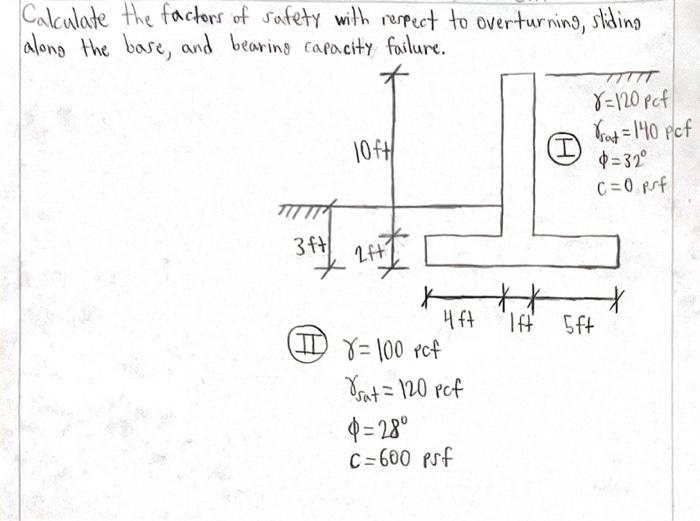 Calculate the factors of safety with respect to overturning, sliding
along the base, and bearing capacity failure.
10ft
3ft
2ft
I
γ=120 pcf
γsat=140 pcf
φ=32°
c=0 psf
4ft 1ft 5ft
II
γ=100 pcf
γsat=120 pcf
φ=28°
c=600 psf